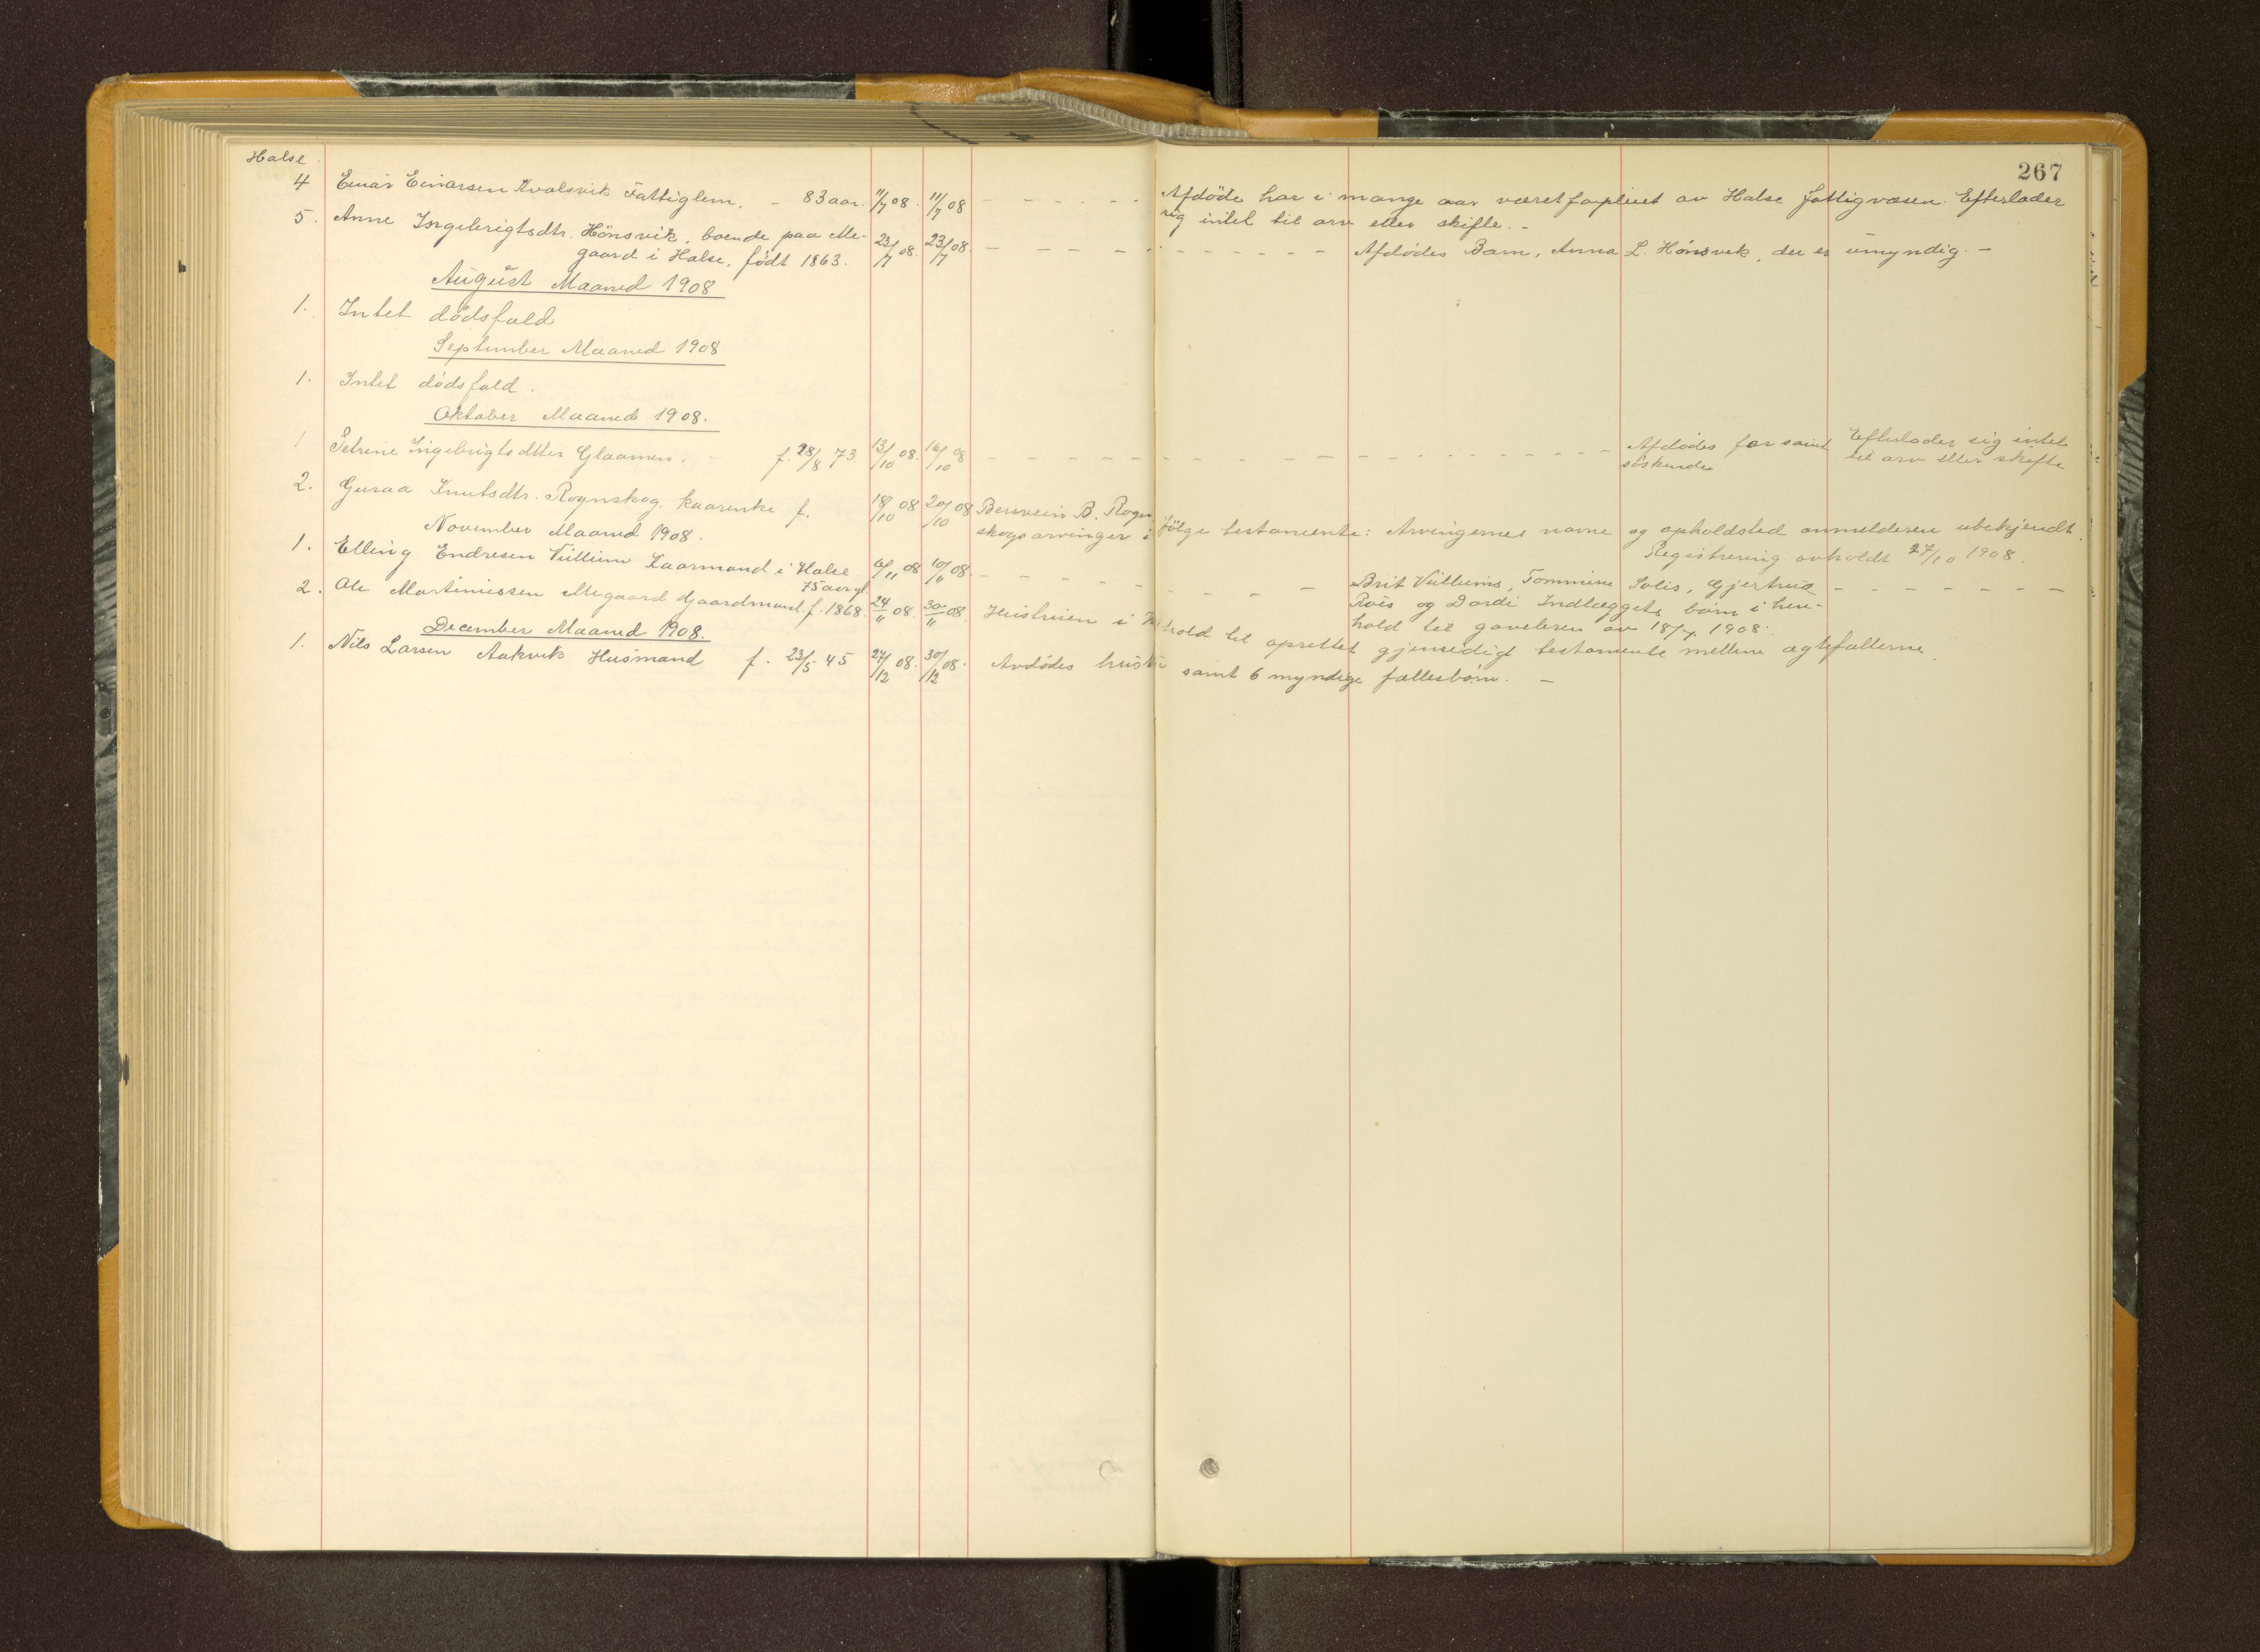 267
Halse
4 Einar Einarsen Kvalsvik Fattiglem. - 83 aar. 11/7 08. 11/7 08 - - - - - - Afdöde har i mange aar været forpleiet av Halse fattigvæsen. Efterlader
sig intet til arv eller skifte. -
5. Anne Ingebrigtsdtr. Hönsvik, boende paa Me- 23/7 08. 23/7 08. - - - - - - - - - Afdödes Barn, Anna L. Hönsvik, der er umyndig. -
gaard i Halse. født 1863.
August Maaned 1908
1. Intet dödsfald
September Maaned 1908
1. Intet dödsfald.
Oktober Maaned 1908.
1 Petrine Ingebrigtsdtter Glaamen. - f. 28/8 73. 13/10 08. 16/10 08 - - - - - - - - - Afdödes far samt Efterlader sig intet
söskende til arv eller skifte
2. Guraa Knutsdtr. Rognskog. kaarenke f. 18/10 08 20/10 08 Bersvein B. Rogn
skogs arvinger i fölge testamente: Arvingernes navne og opholdsted anmelderen ubekjendt.
Registrering avholdt 27/10 1908.
November Maaned 1908.
1. Elling Endresen Vullum Kaarmand i Halse. 6/11 08 10/11 08. - - - - - - - - Brit Vullums, Tommine Solis, Gjertrud - - - - - -
75 aar gl. Röës og Dordi Indlæggets börn i hen-
hold til gavebrev av 18/7 1908.
2. Ole Martiniussen Megaard Gaardmand. f. 1868. 24/11 08. 30/11 08. Hustruen i henhold til oprettet gjensidigt testamente mellem ægtefællerne.
December Maaned 1908.
1. Nils Larsen Aakvik Husmand f. 23/5 45 27/12 08. 30/12 08. Avdödes hustru samt 6 myndige fællesbörn. -